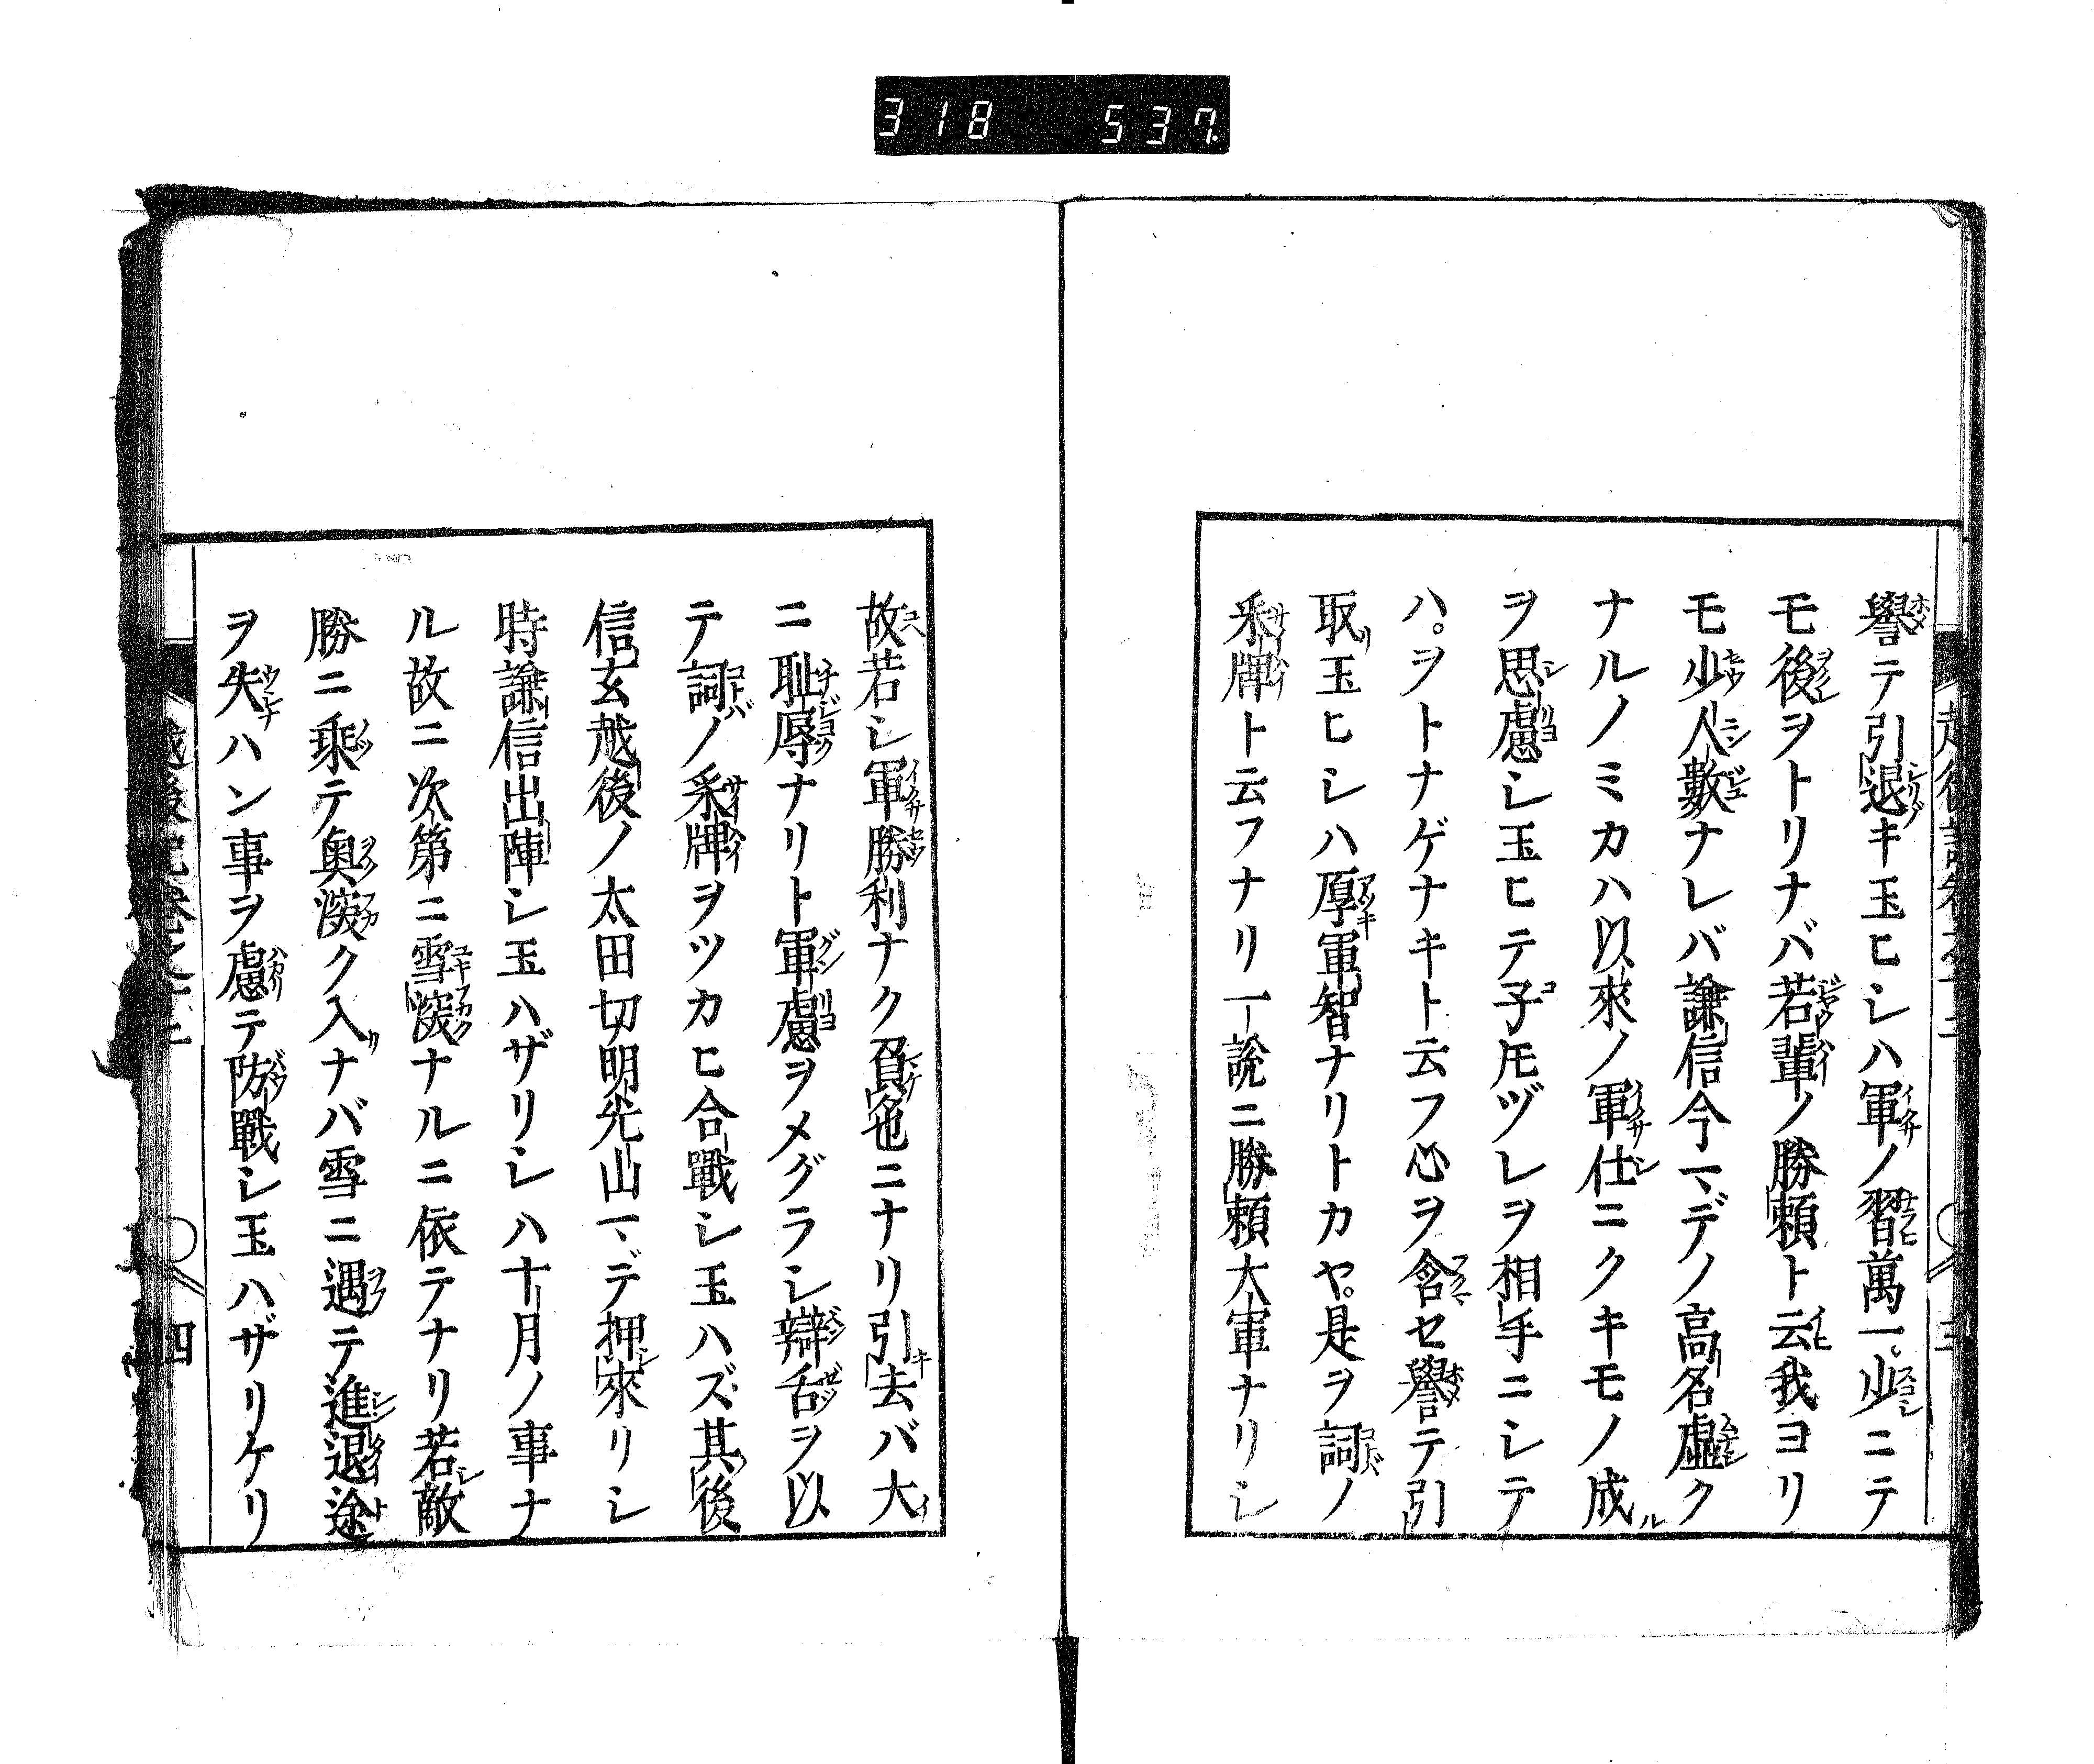 318 537
譽テ引退キ玉ヒシハ軍ノ習萬一少ニテ
モ後ヲトリナバ若輩ノ勝頼ト云我ヨリ
モ少人數ナレバ謙信今マデノ高名虚ク
ナルノミカハ以來ノ軍仕ニクキモノ成
ヲ思慮シ玉ヒテ子モヅレヲ相手ニシテ
ハ。ヲトナゲナキト云フ心ヲ含セ譽テ引
取玉ヒシハ厚軍智ナリトカヤ。是ヲ詞ノ
釆牌ト云フナリ一說ニ勝頼大軍ナリシ
故若シ軍勝利ナク負色ニナリ引去バ大
ニ耻辱ナリト軍慮ヲメグラシ辯舌ヲ以
テ詞ノ釆牌ヲツカヒ合戰シ玉ハズ其後
信玄越後ノ太田切明光山マデ押來リシ
時謙信出陣シ玉ハザリシハ十月ノ事ナ
ル故ニ次第ニ雪深ナルニ依テナリ若敵
勝ニ乗テ奥深ク入ナバ雪ニ遇テ進退途
ヲ失ハン事ヲ慮テ防戰シ玉ハザリケリ
越後記卷之十二
四